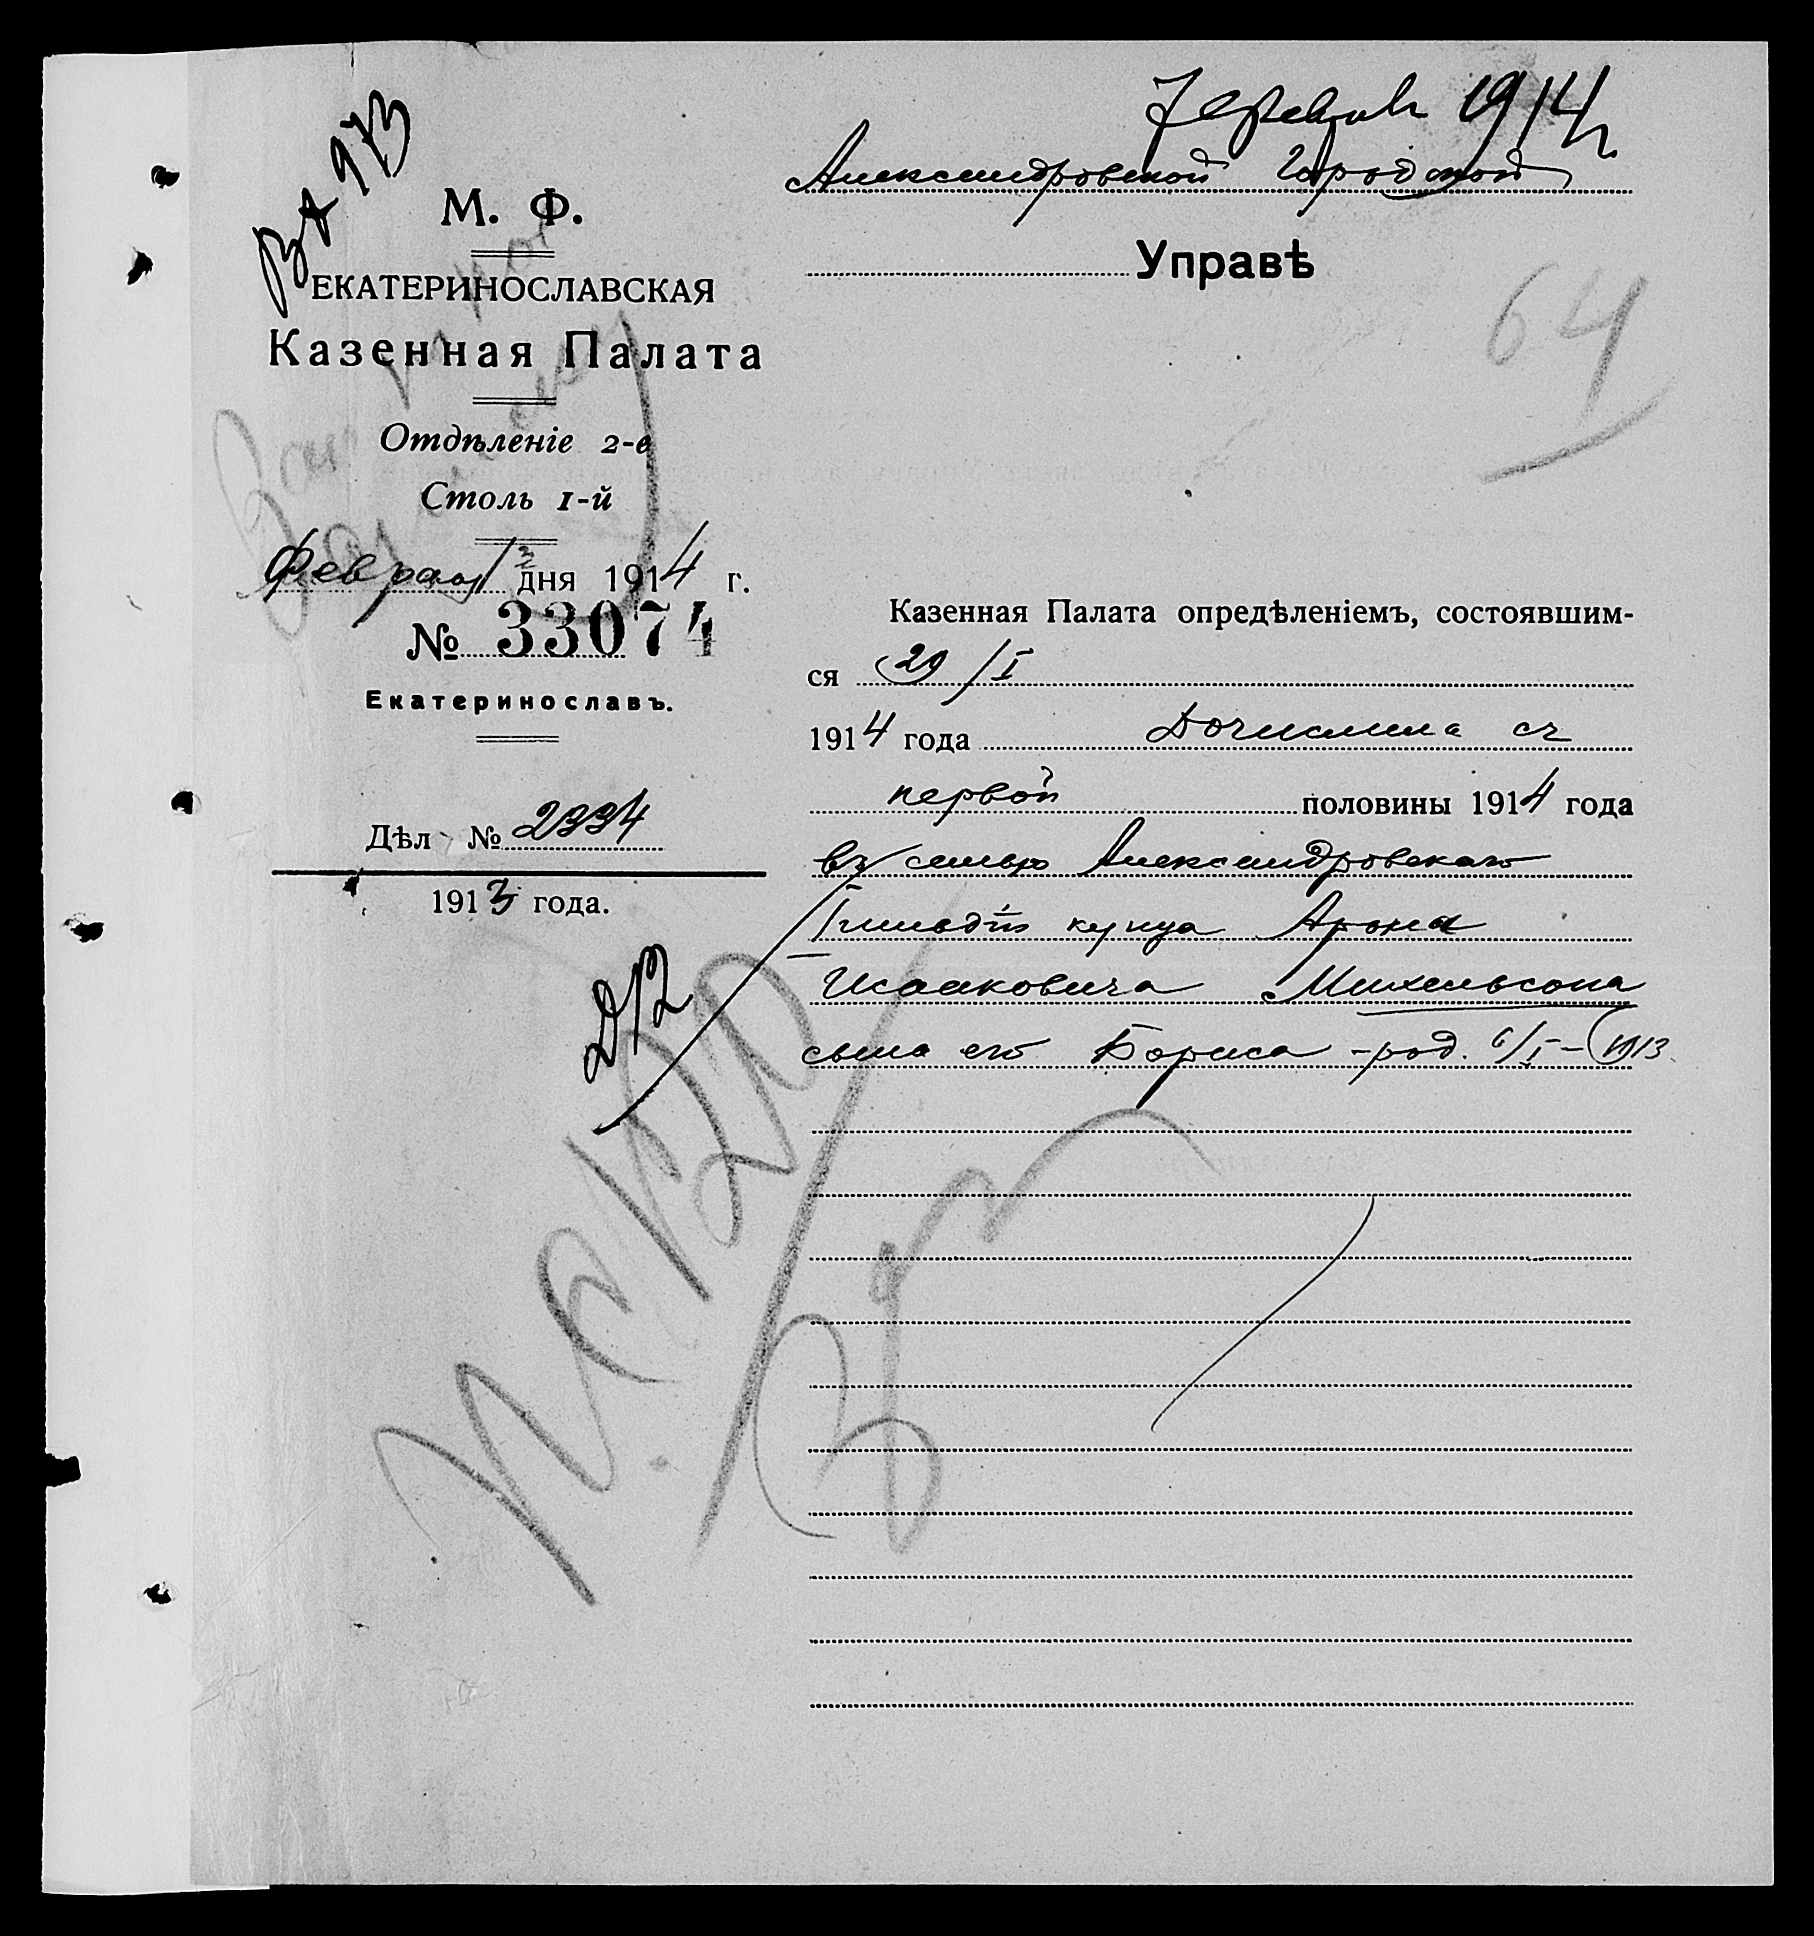 7 Февраля 1914 г.
Александровской Городской
Управѣ
64
ВХ 973
М. Ф.
ЕКАТЕРИНОСЛАВСКАЯ
Казенная Палата
Отдѣленіе 2-е
Столъ 1-й
Февраля 3 дня 1914 г.
№ 33074
Екатеринославъ.
Дѣл №
1913 года.
Казенная Палата опредѣленіемъ, состоявшим-
ся 29/I
1914 года Дочислила съ
первой половины 1914 года
въ семью Александровскаго
I гильдіи купца Арона
Исааковича Михельсона
сына его Бориса - род. 6/I - 1913